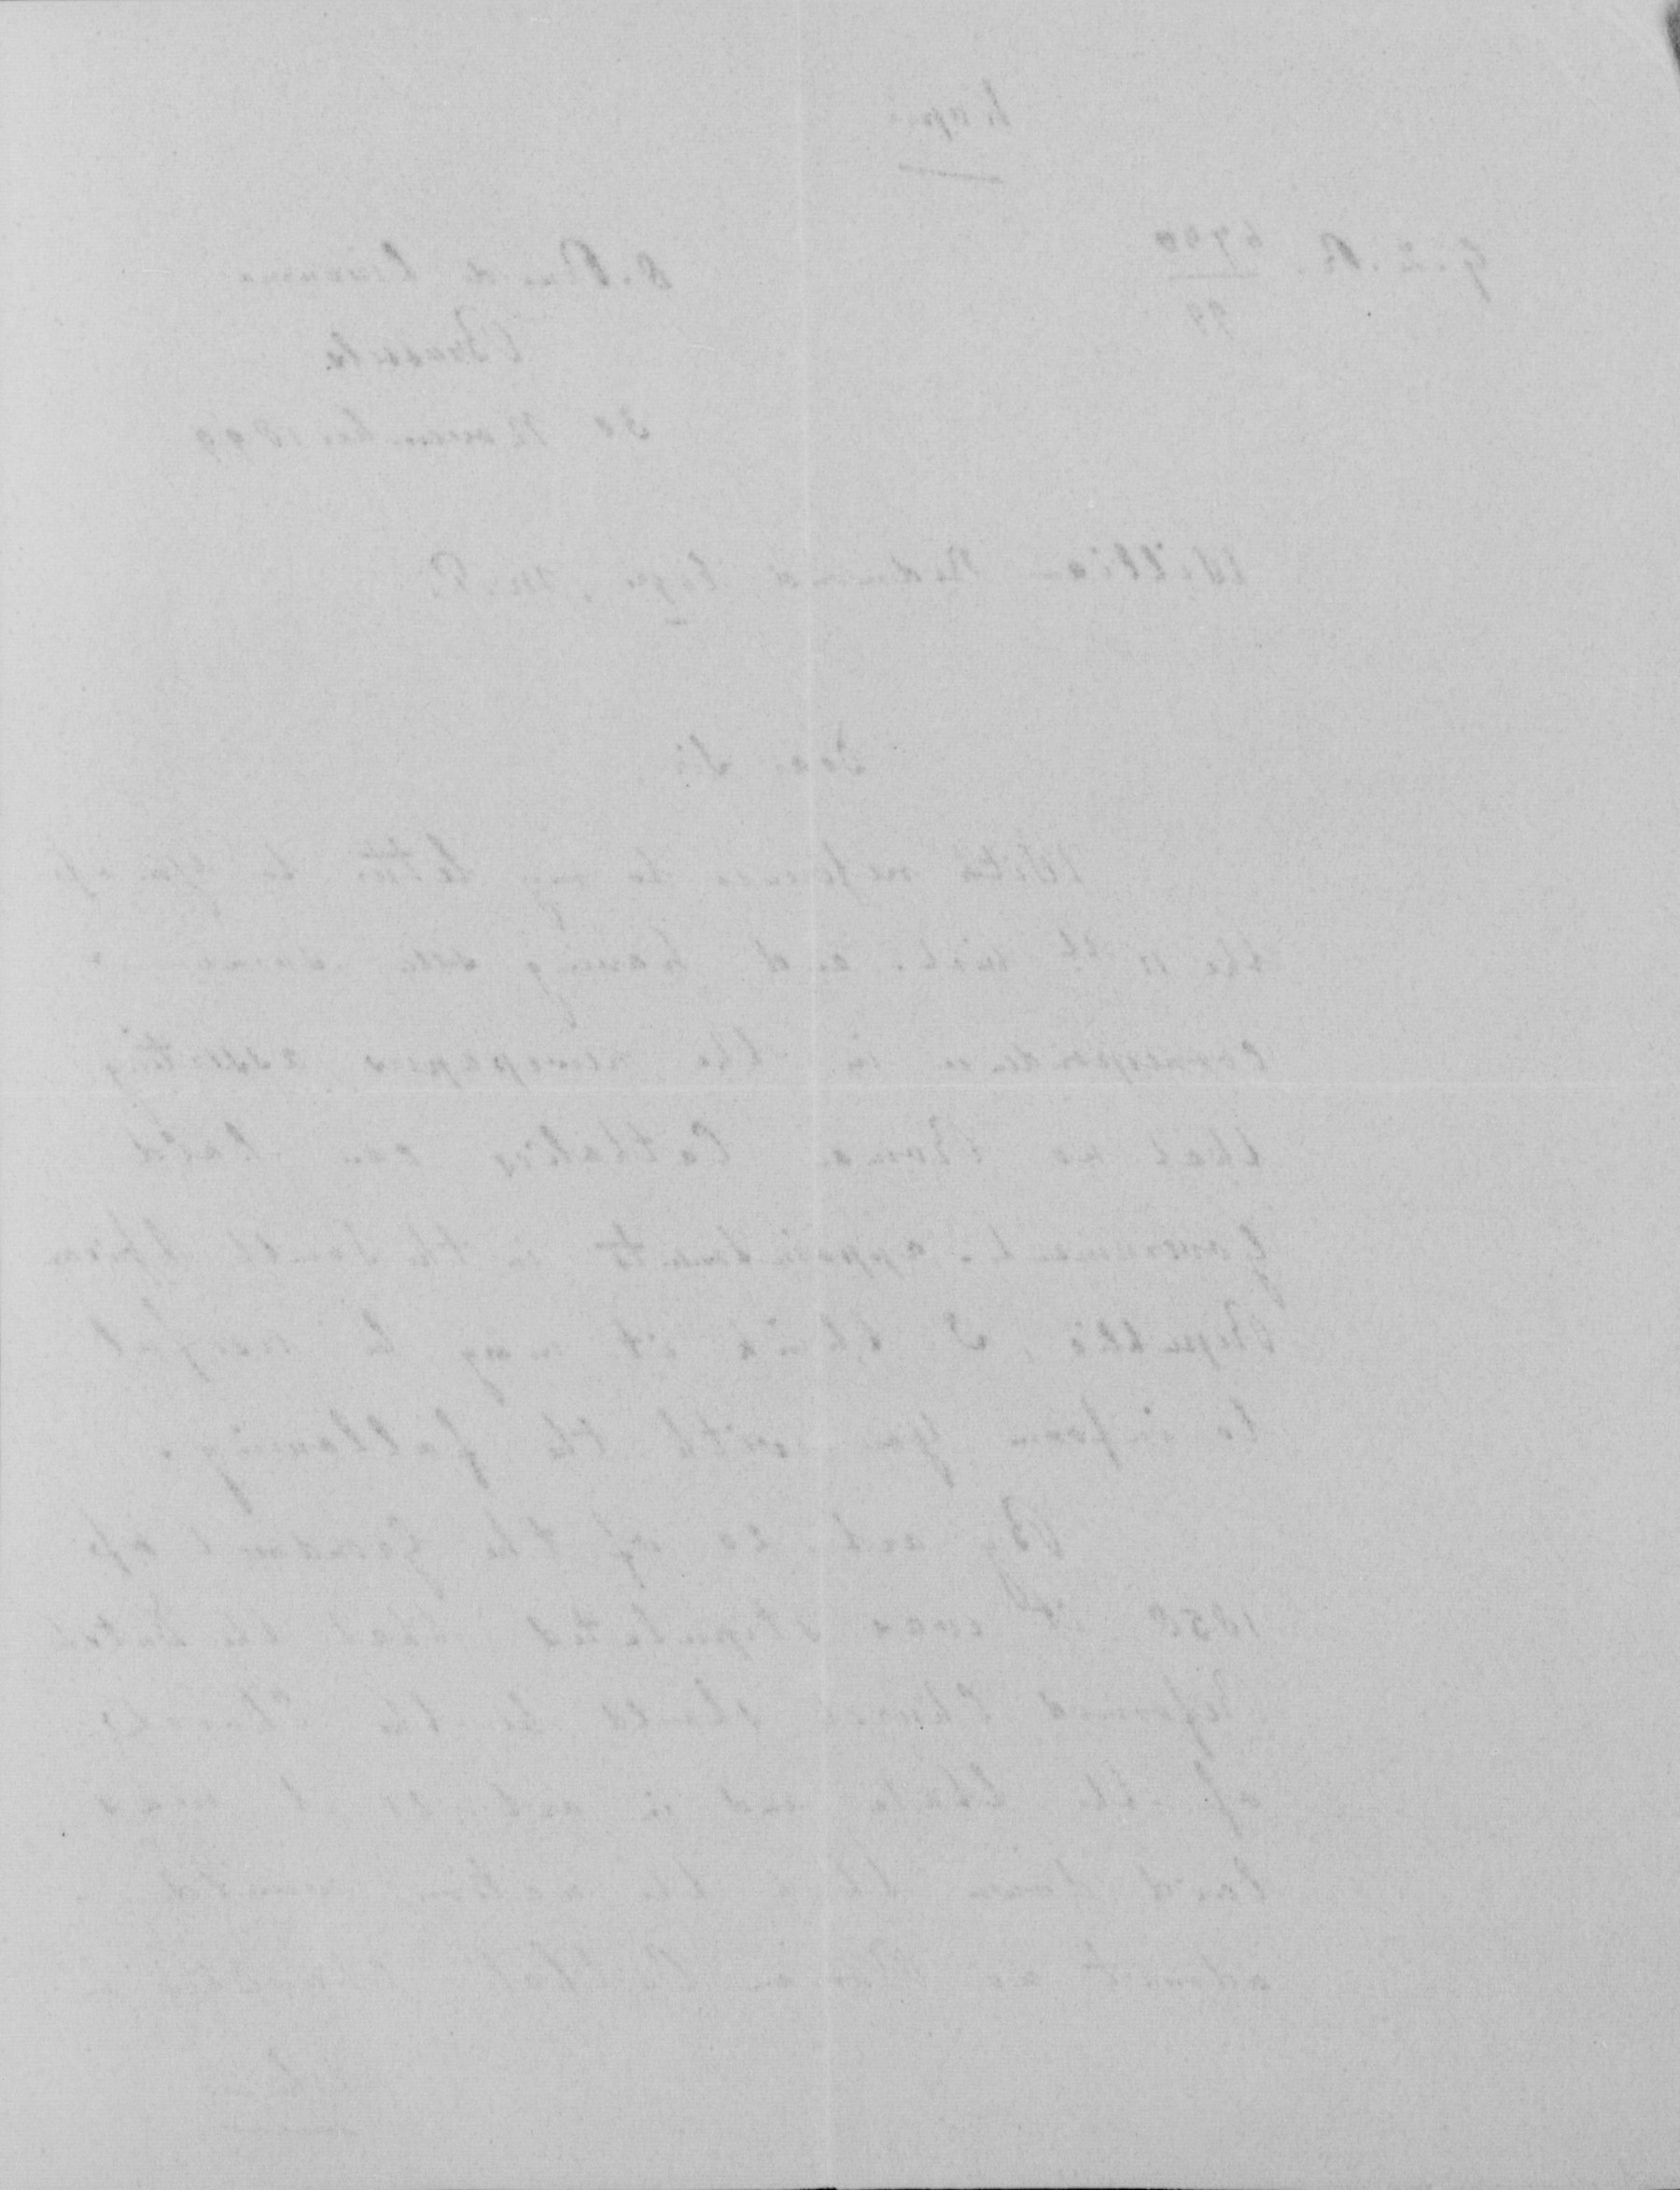 Kopie
G.Z.R. 6740
99
8. Rue de Livourne
Brussels
30 November 1899
William Redmond Esqre, M.P.
Dear Sir,
With reference to my letter to you of
the 11th inst. and having seen
correspondence in the newspapers asserting
that no Roman Catholics can hold
Government appointments in the South African
Republic, I think it may be useful
to inform you with the following.
By art. 20 of the Grondwet of
1858 it was stipulated that the Dutch
Reformed Church should be the Church
of the State and in art. it was
laid down that the nation
admit no Roman